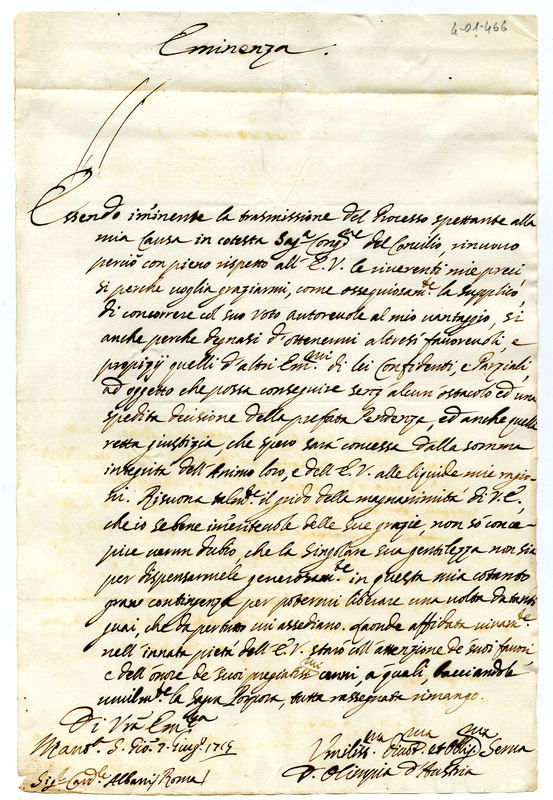 4-01-466
Eminenza.
Essendo iminente la trasmissione del Processo spettante alla
mia Causa in cotesta Sag.ª Cong.ne del Concilio, rinuovo
perciò con pieno rispetto all' E.V. le riverenti mie preci
si perche voglia graziarmi, come ossequiosam.te la supplico,
di concorrere col suo Voto autorevole al mio vantaggio, si
anche perche degnasi d'ottenermi altresì favorevoli e
propizij quelli d'altri Em.mi di lei Confidenti, e Parziali,
ad oggetto che possa conseguire senz' alcun' ostacolo ed una
spedita decisione della prefata Pendenza, ed anche quella
retta giustizia, che spero sarà concessa dalla somma
integrità dell' Animo loro, e dell' E.V. alle liquide mie ragio-
ni. Risuona talm.te il grido della magnanimità di V.E.,
che io sebene imeritevole delle sue grazie, non sò conce-
pire verun dubio, che la singolare sua gentilezza non sia
per dispensarmele generosam.te in questa mia cotanto
grave contingenza per potermi liberare una volta da tanti
guai, che da per tutto mi assediano. Laonde affidata vivam.te
nell' innata pietà dell' E.V. starò coll' attenzione de suoi favori
e dell' onore de suoi pregiatiss.mi cenni, a quali, bacciandole
umilm.te la Sagra Porpora, tutta rassegnata rimango.
Di Vrã Em.za
Mant.ª S. Gio. 7. Giug.º 1715
Umiliss.ma Divot.ma et Obblig.ma Serva
Sig.r Card.le Albani Roma
D. Olimpia d'Austria